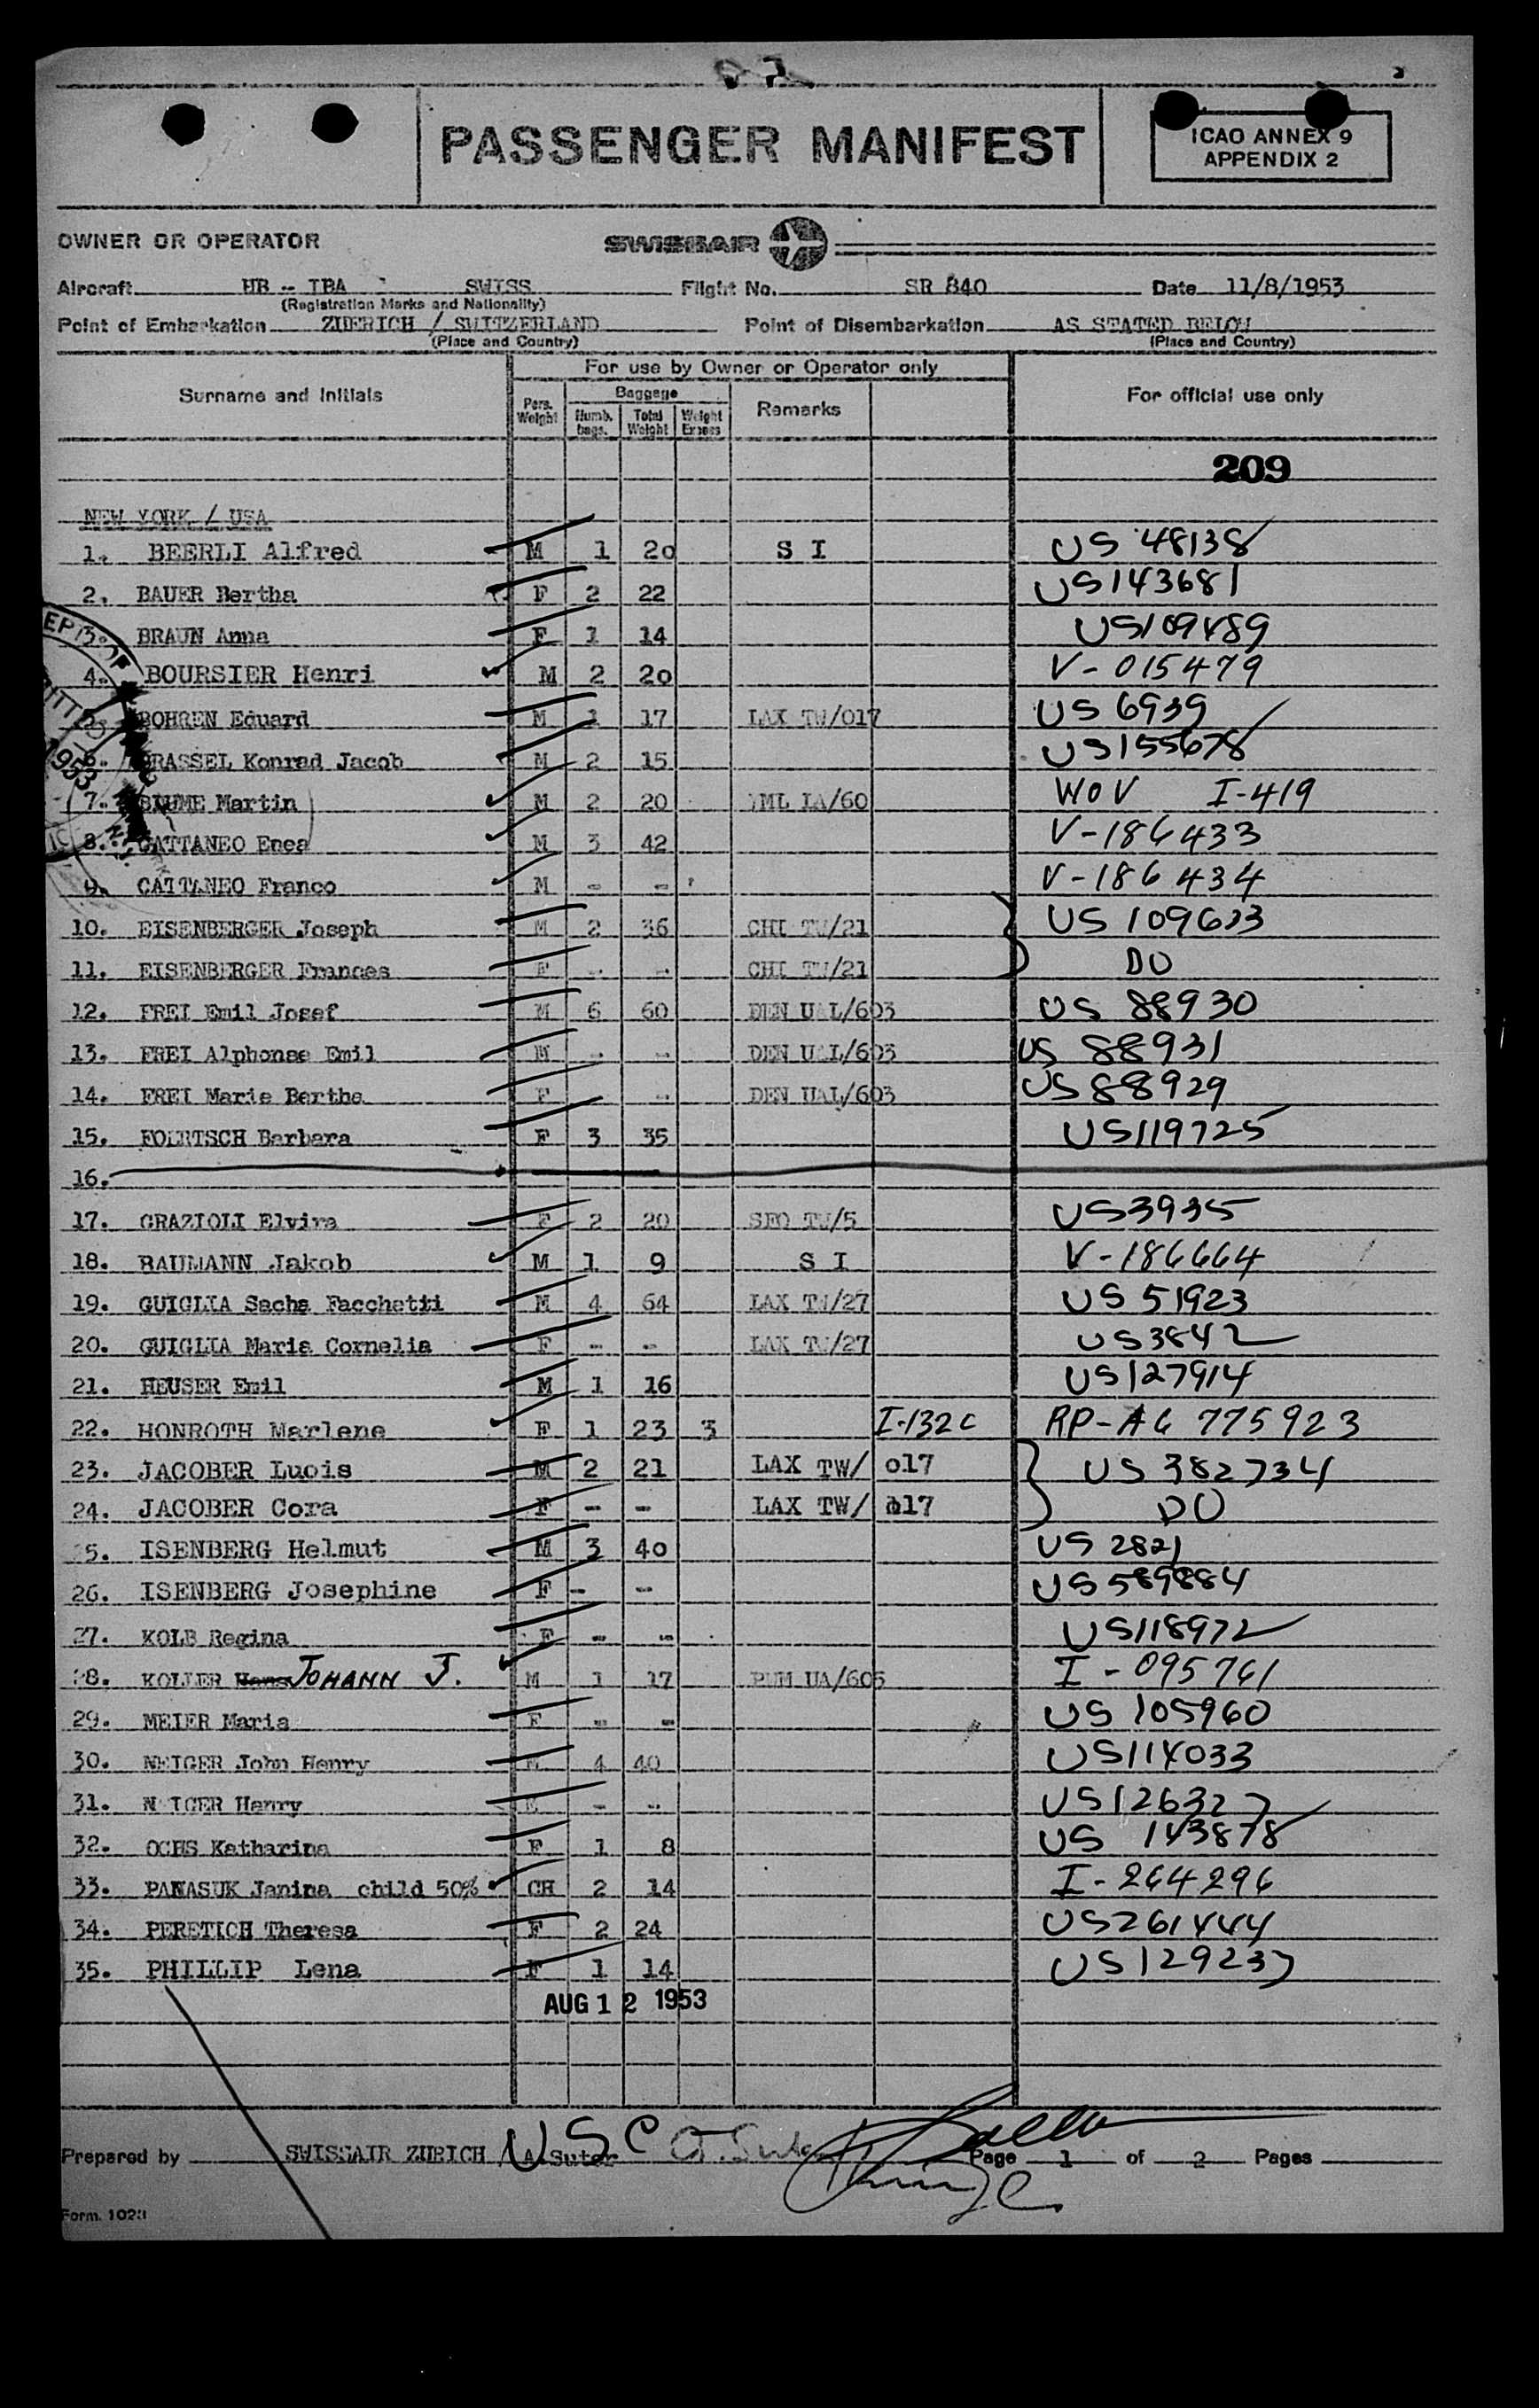 PASSENGER MANIFEST
ICAO ANNEX 9
APPENDIX 2
OWNER OR OPERATOR
SWISSAIR
Aircraft HB -- IBA SWISS Flight No. SR 840 Date 11/8/1953
(Registration Marks and Nationality)
Point of Embarkation ZUERICH / SWITZERLAND Point of Disembarkation AS STATED BELOW
(Place and Country) (Place and Country)
For use by Owner or Operator only
Surname and Initials Pers. Weight Baggage Numb. bags. Total Weight Weight Excess Remarks For official use only
209
NEW YORK / USA
1. BEERLI Alfred M 1 20 S I US 48138
2. BAUER Bertha F 2 22 US143681
3. BRAUN Anna F 1 14 US109489
4. BOURSIER Henri M 2 20 V-015479
5. BOHREN Eduard M 1 17 LAX TW/017 US 6939
6. BRASSEL Konrad Jacob M 2 15 US155678
7. BLUME Martin M 2 20 LA/60 WOV I-419
8. CATTANEO Enea M 3 42 V-186433
9. CATTANEO Franco M - - V-186434
10. EISENBERGER Joseph M 2 36 CHI TW/21 US 109633
11. EISENBERGER Frances F - - CHI TW/21 DO
12. FREI Emil Josef M 6 60 DEN UAL/603 US 88930
13. FREI Alphonse Emil M - - DEN UAL/603 US 88931
14. FREI Marie Bertha F - - DEN UAL/603 US 88929
15. FOERTSCH Barbara F 3 35 US119725
16.
17. GRAZIOLI Elvira F 2 20 SFO TW/5 US3935
18. BAUMANN Jakob M 1 9 S I V-186664
19. GUIGLIA Sacha Facchetti M 4 64 LAX TW/27 US 51923
20. GUIGLIA Maria Cornelia F - - LAX TW/27 US3842
21. HEUSER Emil M 1 16 US127914
22. HONROTH Marlene F 1 23 3 I-132C RP-A6 775923
23. JACOBER Luois M 2 21 LAX TW/ 017 US 382734
24. JACOBER Cora F - - LAX TW/ 017 DO
25. ISENBERG Helmut M 3 40 US 2821
26. ISENBERG Josephine F - - US 589884
27. KOLB Regina F - - US118972
28. KOLLER Hans JOHANN J. M 1 17 UA/605 I-095761
29. MEIER Maria F - - US 105960
30. NEIGER John Henry M 4 40 US114033
31. NEIGER Henry M - - US126327
32. OCHS Katharina F 1 8 US 143878
33. PANASUK Janina child 50% CH 2 14 I-264296
34. PERETICH Theresa F 2 24 US261444
35. PHILLIP Lena F 1 14 US129237
AUG 12 1953
USC
Prepared by SWISSAIR ZURICH / A.Suter Page 1 of 2 Pages
Form. 1023